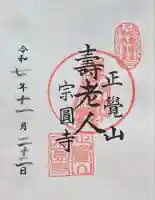 正覺山
壽老人
宗圓寺
令和七年十一月二十二日